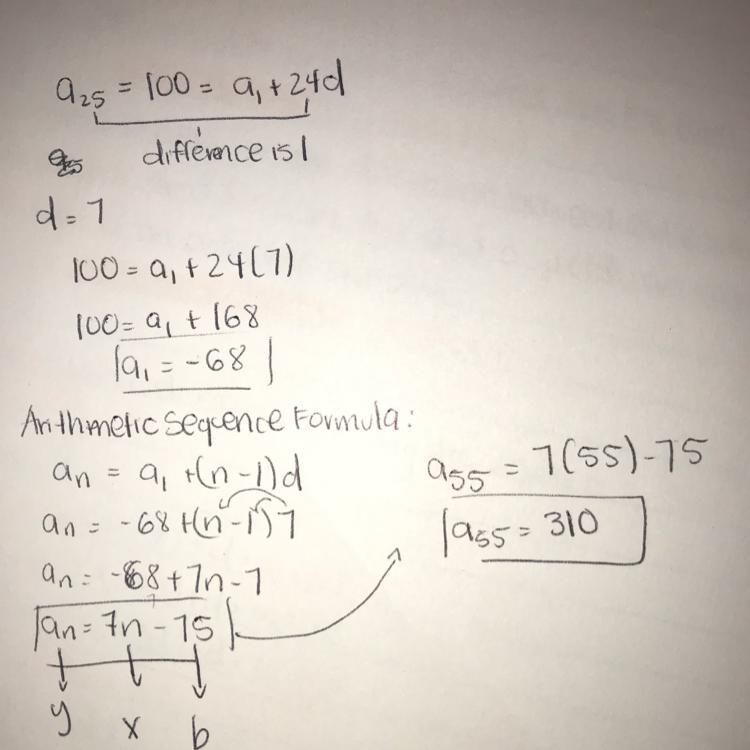 a₂₅ = 100 = a₁ + 24d
difference is 1
d = 7
100 = a₁ + 24(7)
100 = a₁ + 168
a₁ = -68
Arithmetic Sequence Formula:
aₙ = a₁ + (n-1)d
aₙ = -68 + (n-1)7
aₙ = -68 + 7n - 7
aₙ = 7n - 75
y x b
a₅₅ = 7(55) - 75
a₅₅ = 310